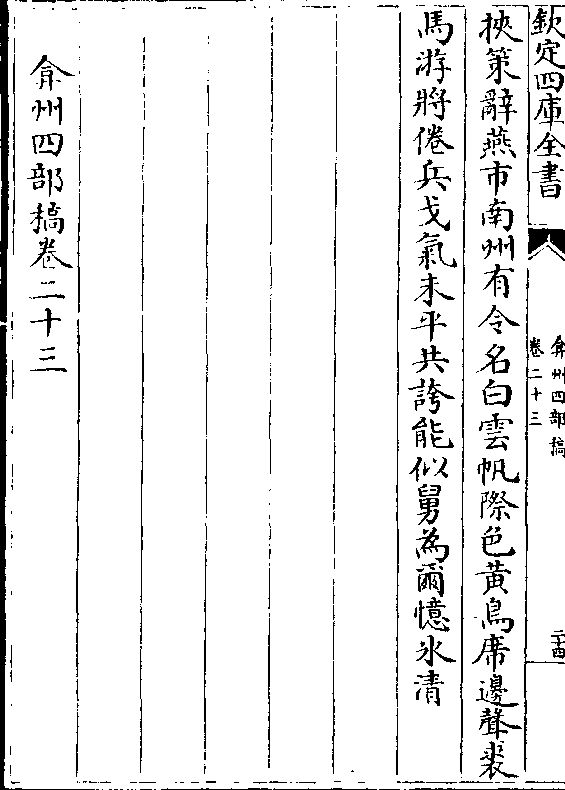 欽定四庫全書
弇州四部稿
卷二十三
二十四
挾策辭燕市南州有令名白雲帆際色黃鳥席邊聲裘
馬游將倦兵戈氣未平共誇能似舅為爾憶氷清
弇州四部稿卷二十三